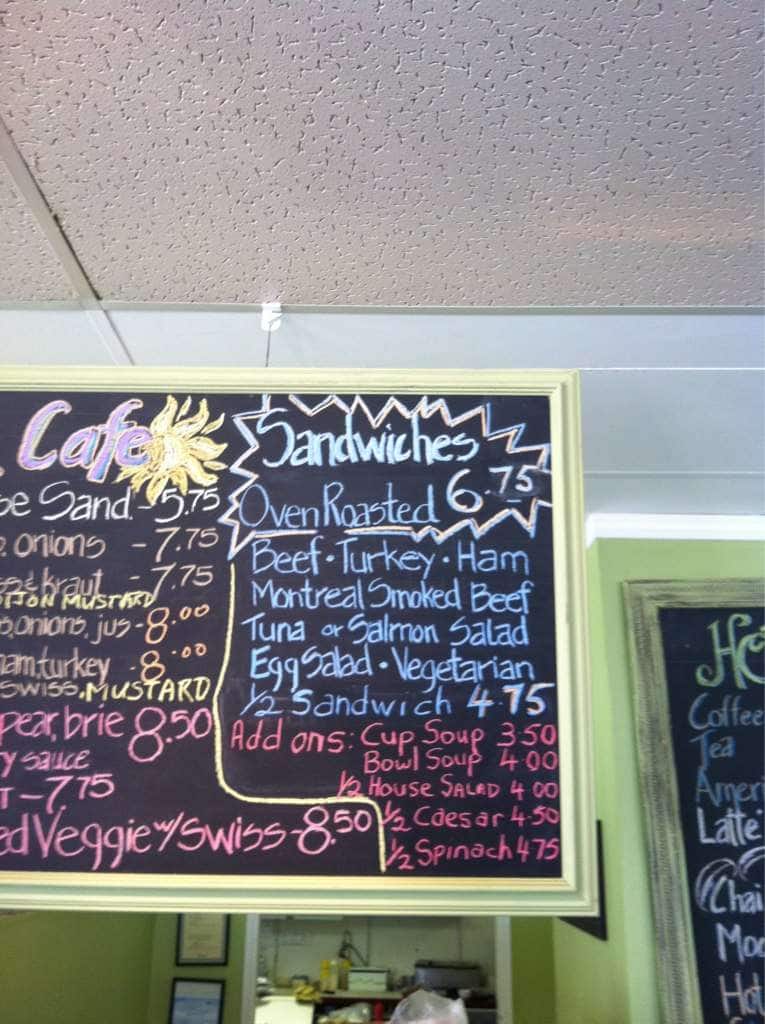 Cafe
Sand. - 5.75
onions - 7.75
kraut - 7.75
MUSTARD
onions, jus - 8.00
turkey - 8.00
SWISS, MUSTARD
pear, brie 8.50
sauce
- 7.75
Veggie w/ Swiss - 8.50
Sandwiches
Oven Roasted 6.75
Beef • Turkey • Ham
Montreal Smoked Beef
Tuna or Salmon Salad
Egg Salad • Vegetarian
1/2 Sandwich 4.75
Add ons: Cup Soup 3.50
Bowl Soup 4.00
1/2 House Salad 4.00
1/2 Caesar 4.50
1/2 Spinach 4.75
Coffee
Tea
Ameri
Latte
Chai
Hot